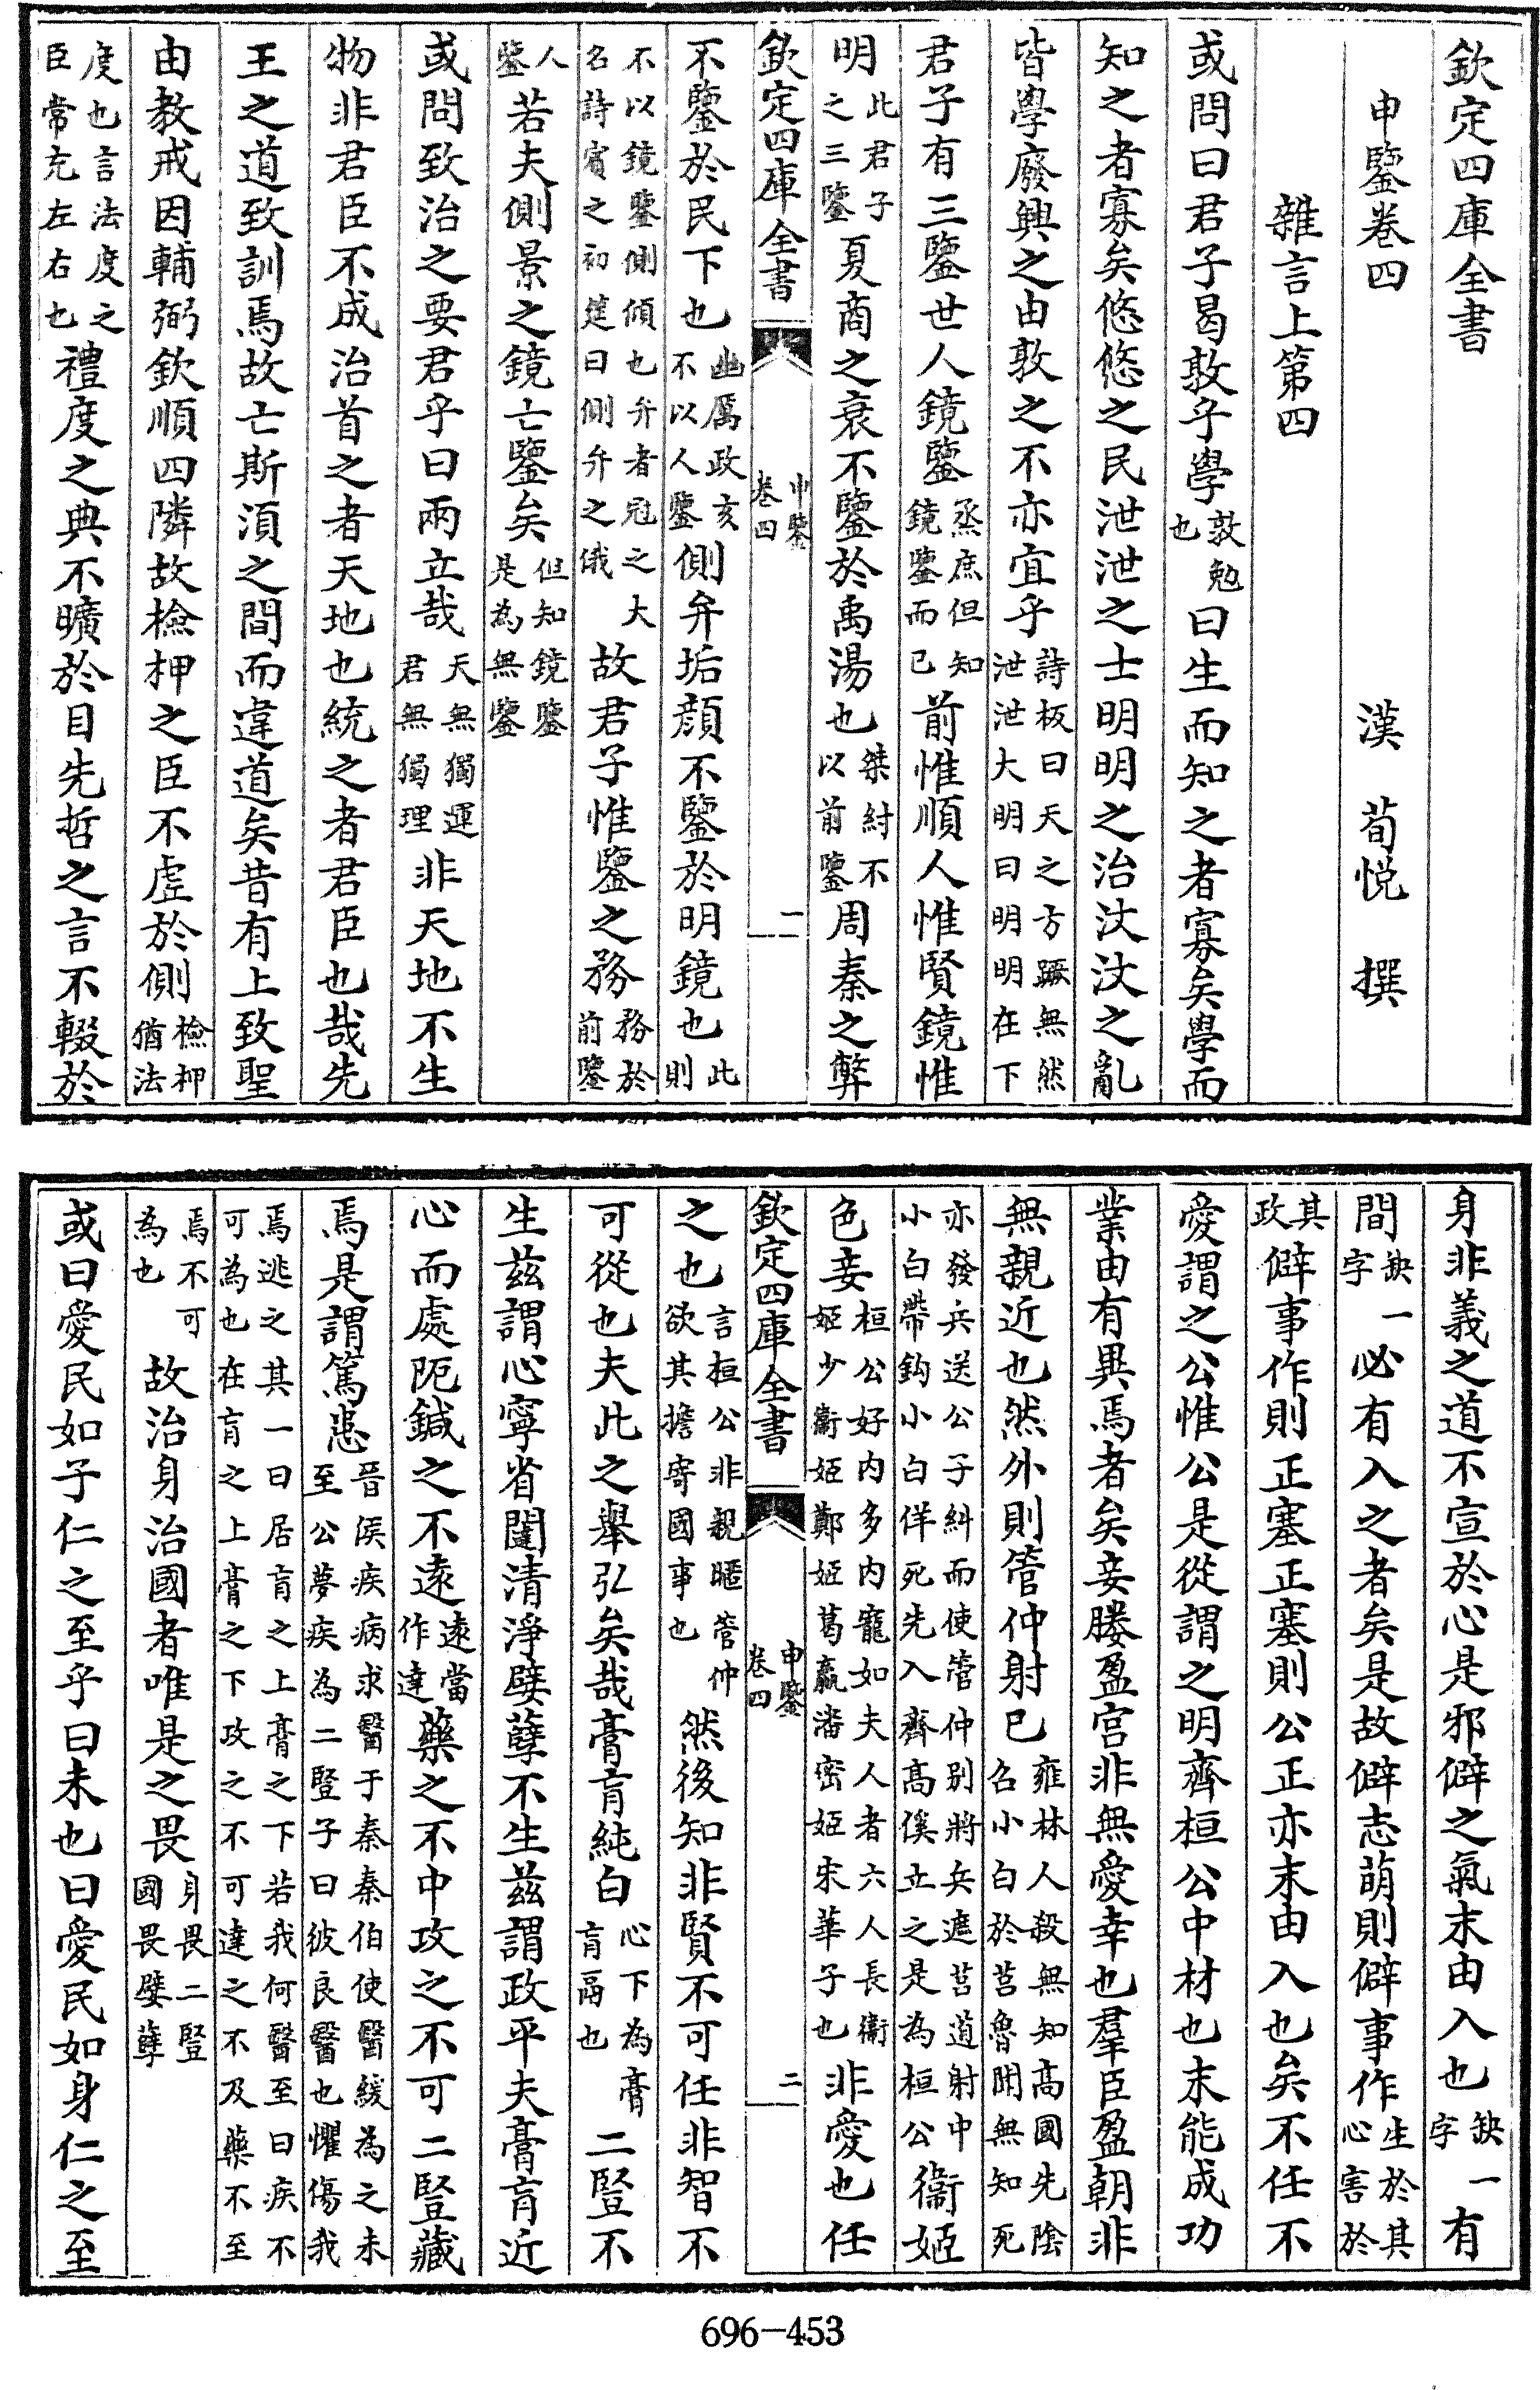 欽定四庫全書
申鑒卷四　漢　荀悅　撰
雜言上第四
或問曰君子曷敦乎學敦勉也曰生而知之者寡矣學而
知之者寡矣悠悠之民泄泄之士明明之治汶汶之亂
皆學廢興之由敦之不亦宜乎詩板曰天之方蹶無然泄泄大明曰明明在下
君子有三鑒世人鏡鑒烝庶但知鏡鑒而已前惟順人惟賢鏡惟
明此君子之三鑒夏商之衰不鑒於禹湯也桀紂不以前鑒周秦之弊
欽定四庫全書　申鑒卷四　一
不鑒於民下也幽厲政亥不以人鑒側弁垢顔不鑒於明鏡也此則
不以鏡鑒側傾也弁者冠之大名詩賓之初筵曰側弁之俄故君子惟鑒之務務於前鑒
人鑒若夫側景之鏡亡鑒矣但知鏡鑒是為無鑒
或問致治之要君乎曰兩立哉天無獨運君無獨理非天地不生
物非君臣不成治首之者天地也統之者君臣也哉先
王之道致訓焉故亡斯須之間而違道矣昔有上致聖
由教戒因輔弼欽順四隣故檢柙之臣不虛於側檢柙猶法
度也言法度之臣常充左右也禮度之典不曠於目先哲之言不輟於
身非義之道不宣於心是邪僻之氣末由入也缺一字有
間缺一字必有入之者矣是故僻志萌則僻事作生於其心害於
其政僻事作則正塞正塞則公正亦末由入也矣不任不
愛謂之公惟公是從謂之明齊桓公中材也末能成功
業由有異焉者矣妾媵盈宫非無愛幸也羣臣盈朝非
無親近也然外則管仲射已雍林人殺無知高國先陰召小白於莒魯聞無知死
亦發兵送公子糾而使管仲别將兵遮莒道射中小白帶鈎小白佯死先入齊高傒立之是為桓公衞姬
色妾桓公好内多内寵如夫人者六人長衞姬少衞姬鄭姬葛嬴潘密姬宋華子也非愛也任
欽定四庫全書　申鑒卷四　二
之也言桓公非親暱管仲欲其擔寄國事也然後知非賢不可任非智不
可從也夫此之舉弘矣哉膏肓純白心下為膏肓鬲也二豎不
生兹謂心寧省闥清淨嬖孽不生兹謂政平夫膏肓近
心而處阨鍼之不遠遠當作達藥之不中攻之不可二豎藏
焉是謂篤患晉侯疾病求醫于秦秦伯使醫緩為之未至公夢疾為二豎子曰彼良醫也懼傷我
焉逃之其一曰居肓之上膏之下若我何醫至曰疾不可為也在肓之上膏之下攻之不可達之不及藥不至
焉不可為也故治身治國者唯是之畏身畏二豎國畏嬖孽
或曰愛民如子仁之至乎曰未也曰愛民如身仁之至
696-453